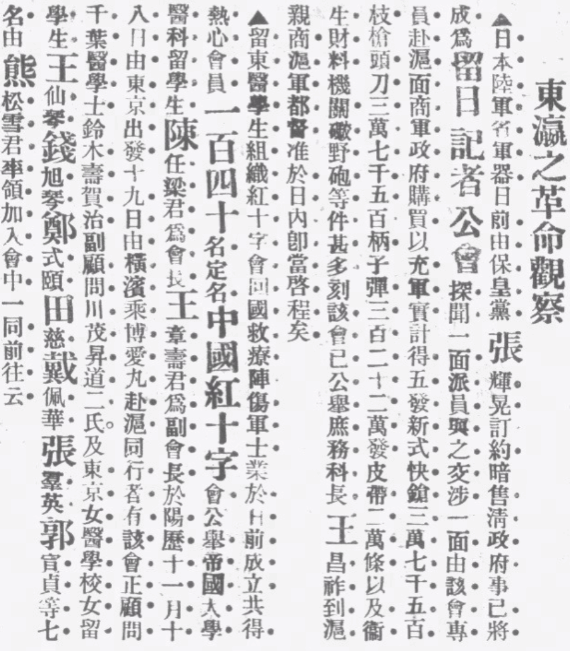 東瀛之革命觀察
▲日本陸軍省軍器日前由保皇黨張輝晃訂約暗售淸政府事已將
成爲留日記者公會探聞一面派員與之交涉一面由該會專
員赴滬面商軍政府購買以充軍實計得五發新式快鎗三萬七千五百
枝槍頭刀三萬七千五百柄子彈三百二十二萬發皮帶二萬條以及衞
生財料機關礮野砲等件甚多刻該會已公舉庶務科長王昌祚到滬
親商滬軍都督准於日內卽當啓程矣
▲留東醫學生組織紅十字會回國救療陣傷軍士業於日前成立共得
熱心會員一百四十名定名中國紅十字會公舉帝國大學
醫科留學生陳任梁君爲會長王章壽君爲副會長於陽歷十一月十
八日由東京出發十九日由橫濱乘博愛丸赴滬同行者有該會正顧問
千葉醫學士鈴木壽賀治副顧問川茂昇道二氏及東京女醫學校女留
學生王仙琴錢旭琴鄭式頤田慈戴佩華張羣英郭官貞等七
名由熊松雪君率領加入會中一同前往云